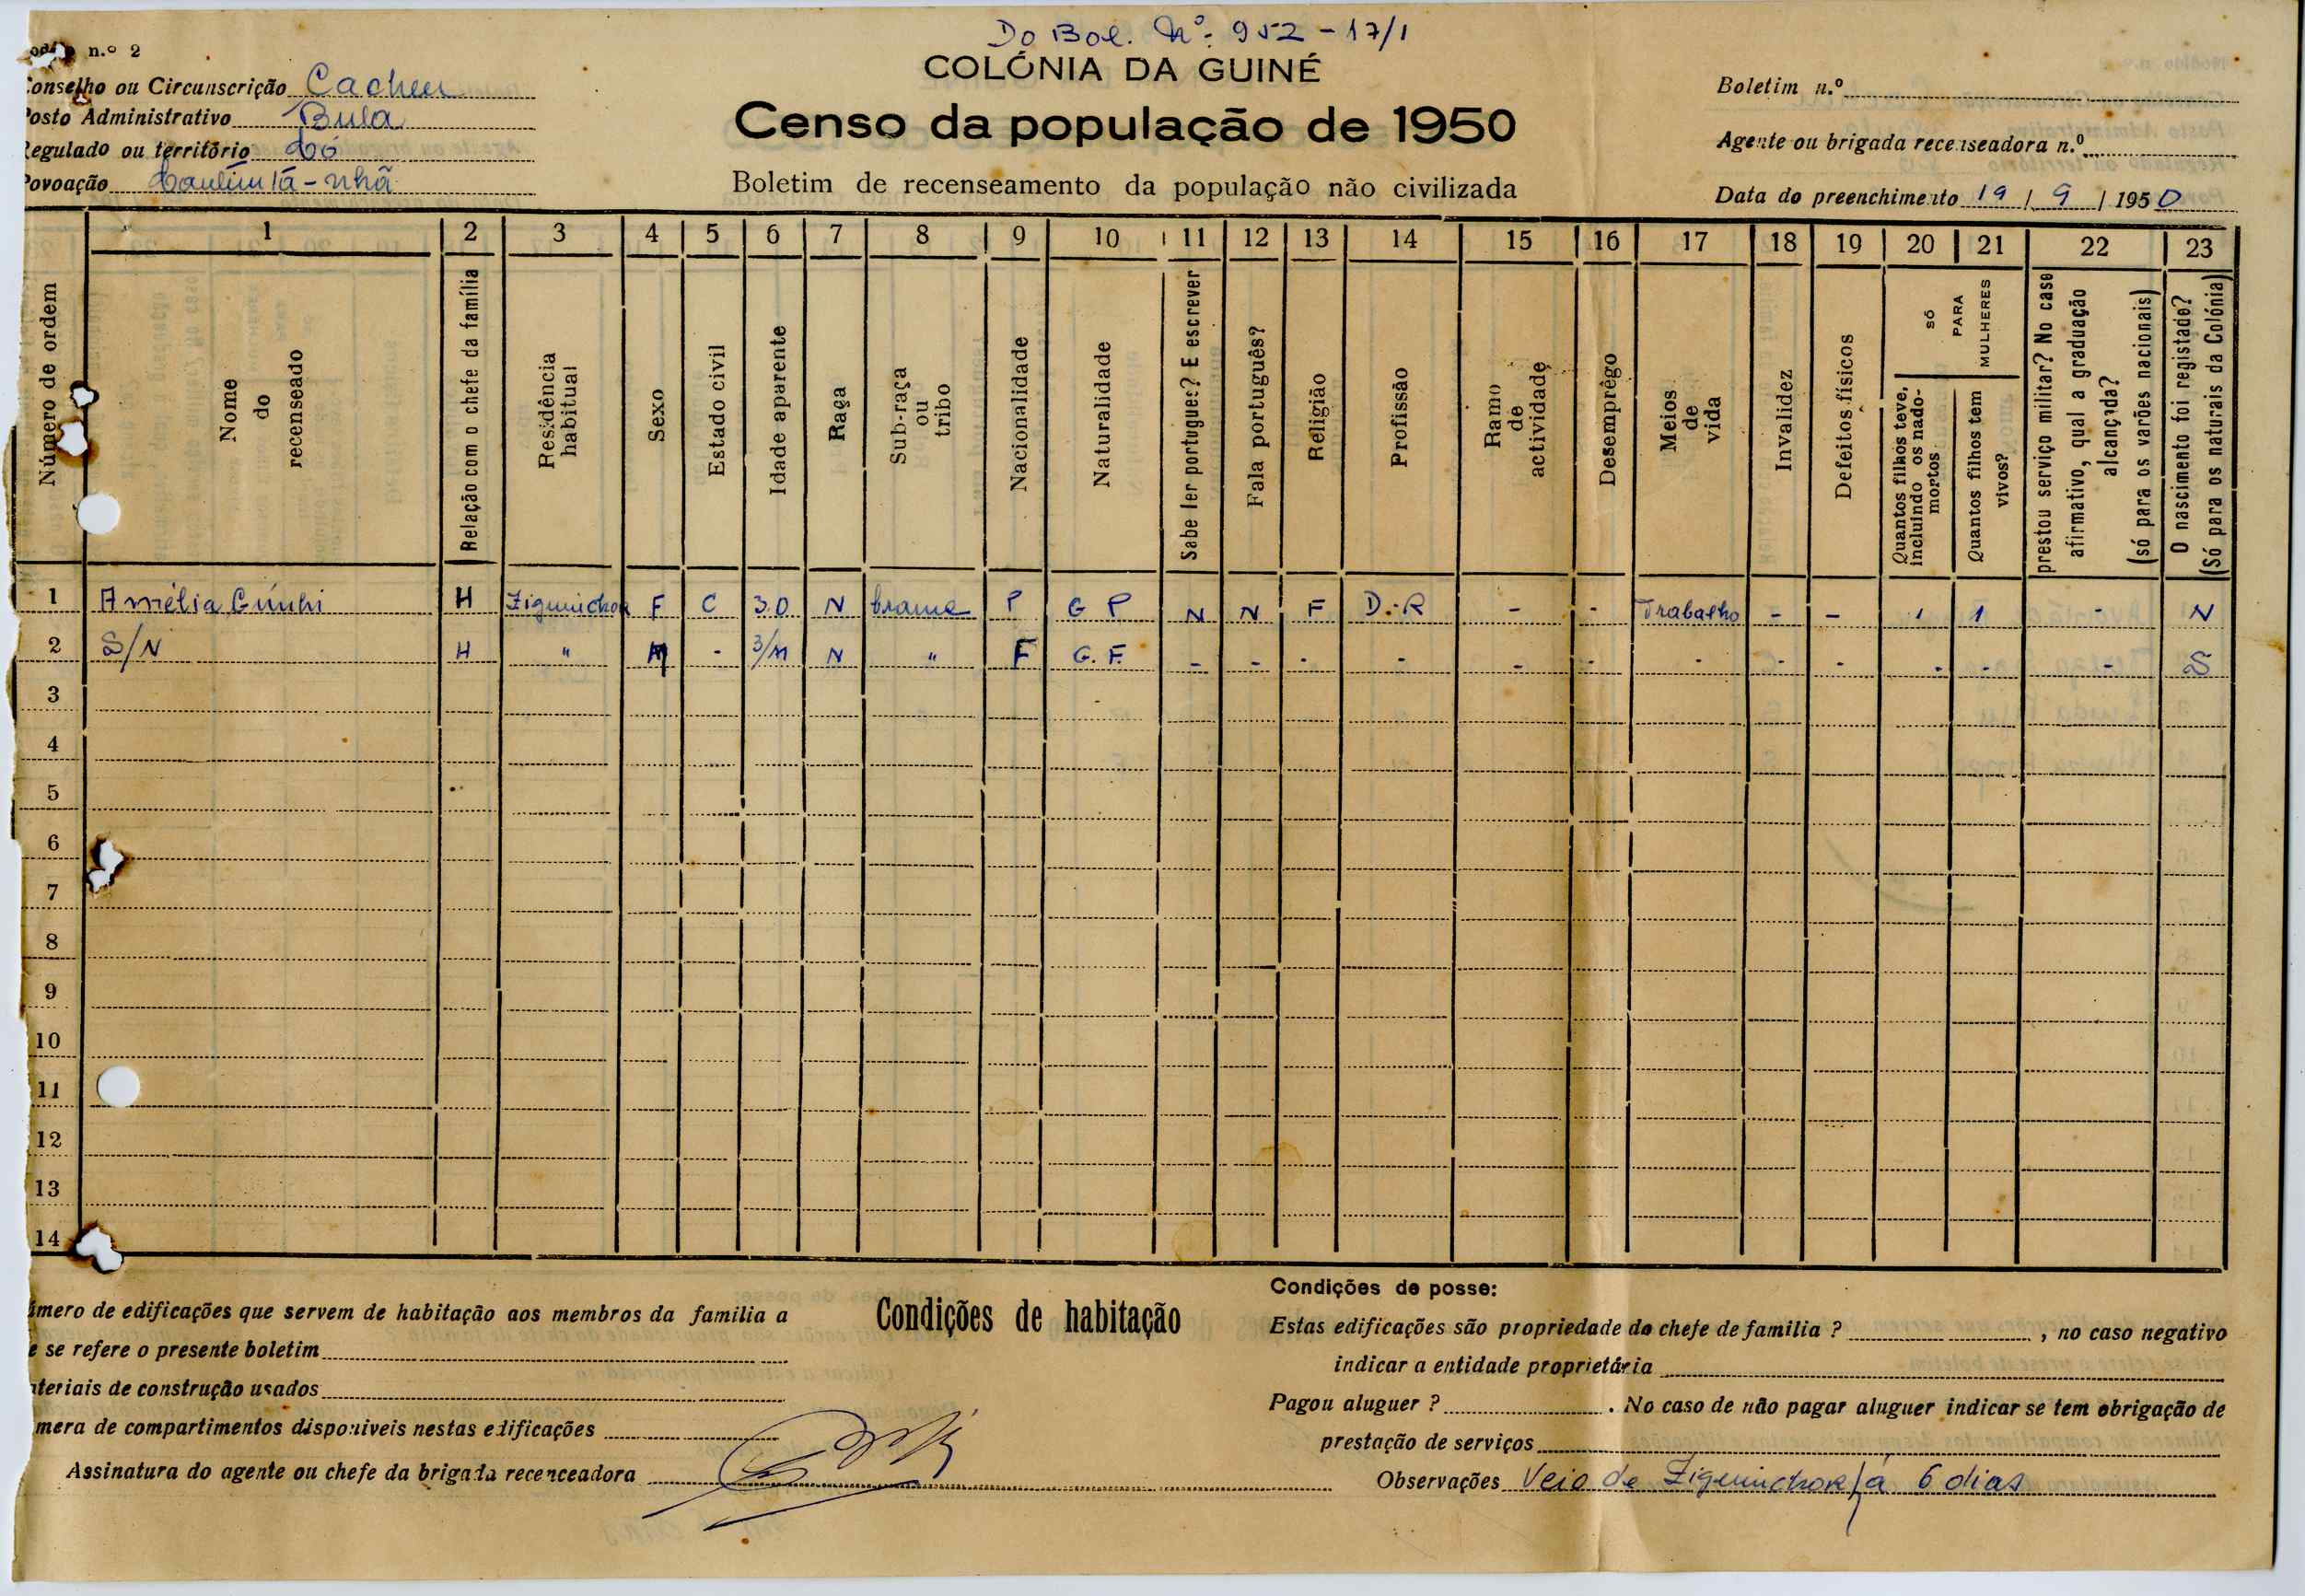 Do Bol. Nº. 952 - 17/1
n.º 2
COLÓNIA DA GUINÉ
Censo da população de 1950
Boletim de recenseamento da população não civilizada
onselho ou Circunscrição Cacheu
osto Administrativo Bula
egulado ou território Có
ovoação
Boletim n.º
Agente ou brigada recenseadora n.º
Data do preenchimento 19 / 9 / 1950
1 2 3 4 5 6 7 8 9 10 11 12 13 14 15 16 17 18 19 20 21 22 23
Número de ordem
Nome
do
recenseado
Relação com o chefe da família
Residência
habitual
Sexo
Estado civil
Idade aparente
Raça
Sub-raça
ou
tribo
Nacionalidade
Naturalidade
Sabe ler portugues? E escrever
Fala português?
Religião
Profissão
Ramo
de
actividade
Desemprêgo
Meios
de
vida
Invalidez
Defeitos físicos
SÓ
PARA
MULHERES
Quantos filhos teve,
incluindo os nado-
mortos
Quantos filhos tem
vivos?
prestou serviço militar? No caso
afirmativo, qual a graduação
alcançada?
(só para os varões nacionais)
O nascimento foi registado?
(Só para os naturais da Colónia)
1 Amélia Gúnhi H Ziguinchor F C 30 N brame P G P N N F D.-R - - Trabalho - - 1 1 - N
2 S/N H " M - 3/M N " F G. F. - - - - - - - - - - - - S
3
4
5
6
7
8
9
10
11
12
13
14
mero de edificações que servem de habitação aos membros da familia a
e se refere o presente boletim
teriais de construção usados
mera de compartimentos disponiveis nestas edificações
Assinatura do agente ou chefe da brigada recenceadora
Condições de habitação
Condições de posse:
Estas edificações são propriedade do chefe de familia ? , no caso negativo
indicar a entidade proprietária
Pagou aluguer ? . No caso de não pagar aluguer indicar se tem obrigação de
prestação de serviços
Observações Veio de Ziguinchor há 6 dias